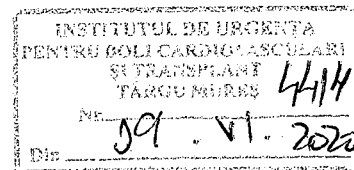 INSTITUTUL DE URGENȚA
PENTRU BOLI CARDIOVASCULARE
ȘI TRANSPLANT
TÂRGU MUREȘ
Nr. 4414
Din 09. VI. 2020